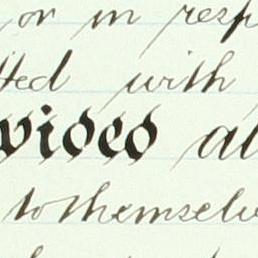 or in resp
tted with
vided al
to themselv